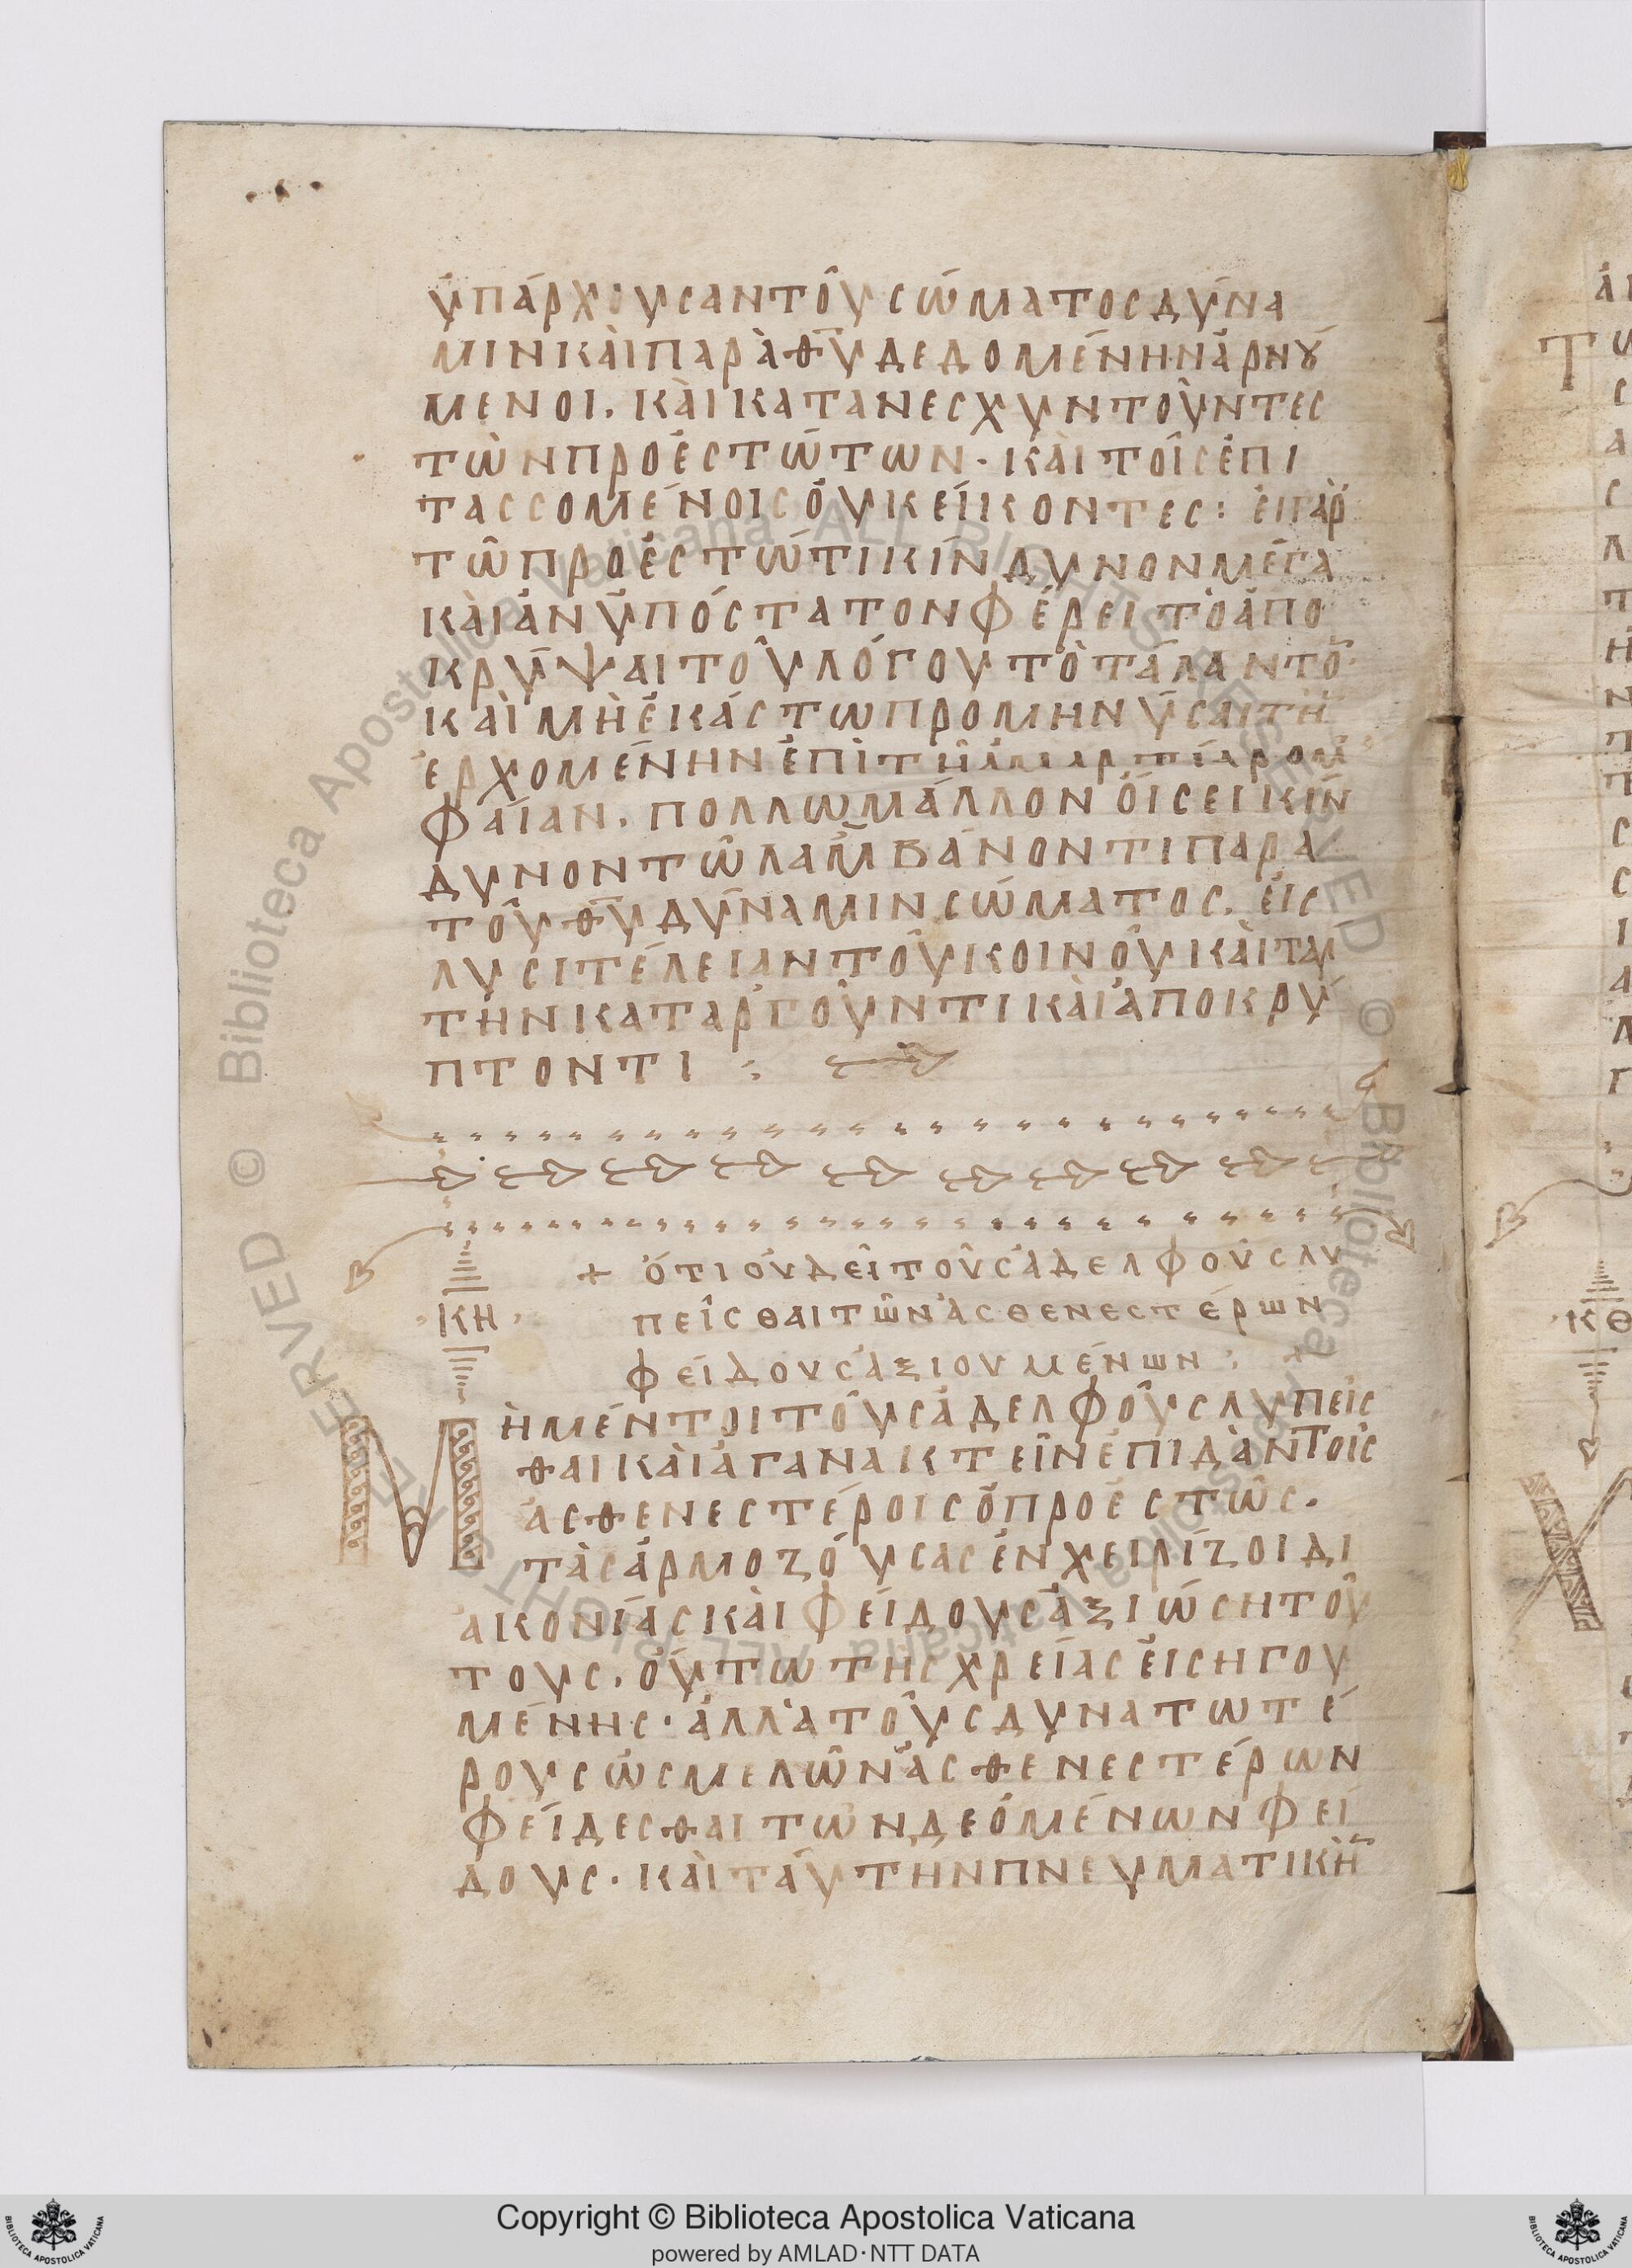 ὑπάρχουσαν τοῦ σώματος δύνα
μιν καὶ παρὰ θ̅υ̅ δεδομένην ἀρνού
μενοι. καὶ κατανεσχυντοῦντες
τῶν προεστώτων. καὶ τοῖς ἐπι
τασσομένοις οὐκ εἴκοντες: εἰ γὰρ
τῶ προεστῶτι κίνδυνον μέγα
καὶ ἀνυπόστατον φέρει τὸ ἀπο
κρύψαι τοῦ λόγου τὸ τάλαντο̅
καὶ μὴ ἑκάστω προμηνύσαι τὴ̅
ἐρχομένην ἐπὶ τῆ ἁμαρτία ρομ
φαίαν. πολλῶ μάλλον οἴσει κίν
δυνον τῶ λαμβάνοντι παρα
τοῦ θ̅υ̅ δύναμιν σώματος. εἰς
λυσιτέλειαν τοῦ κοινοῦ καὶ ταύ
την καταργοῦντι καὶ ἀποκρύ
πτοντι :
+ ὅτι οὐ δεῖ τοὺς ἀδελφοὺς λυ
ΚΗ πεῖσθαι τῶν ἀσθενεστέρων
φειδοῦς ἀξιουμένων : +
Μὴ μέντοι τοὺς ἀδελφοὺς λυπεῖσ
θαι καὶ ἀγανακτεῖν ἐπιδὰν τοῖς
ἀσθενεστέροις ὁ προεστὼς.
τὰς ἁρμοζούσας ἐνχειρίζοι δι
ακονίας καὶ φειδοῦς ἀξιώση τού
τους. οὕτω τῆς χρείας εἰσηγου
μένης. ἀλλὰ τοὺς δυνατωτέ
ρους ὡς μελῶν ἀσθενεστέρων
φείδεσθαι τῶν δεομένων φει
δοῦς. καὶ ταύτην πνευματικὴ̅
ΚΘ
Copyright © Biblioteca Apostolica Vaticana
powered by AMLAD·NTT DATA